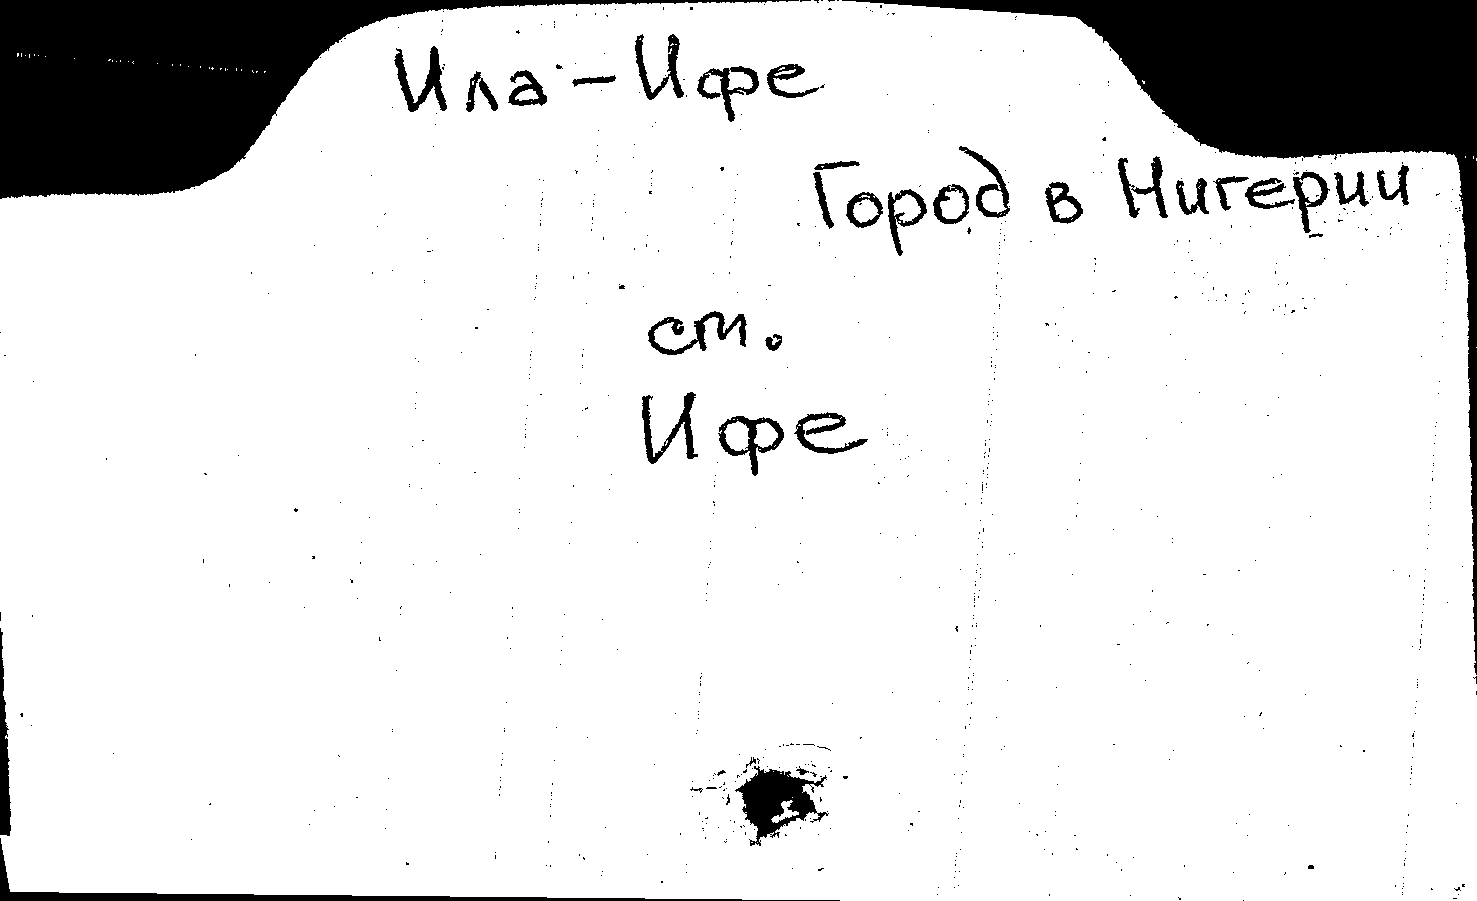 Ила-Ифе
Город в Нигерии
см.
Ифе